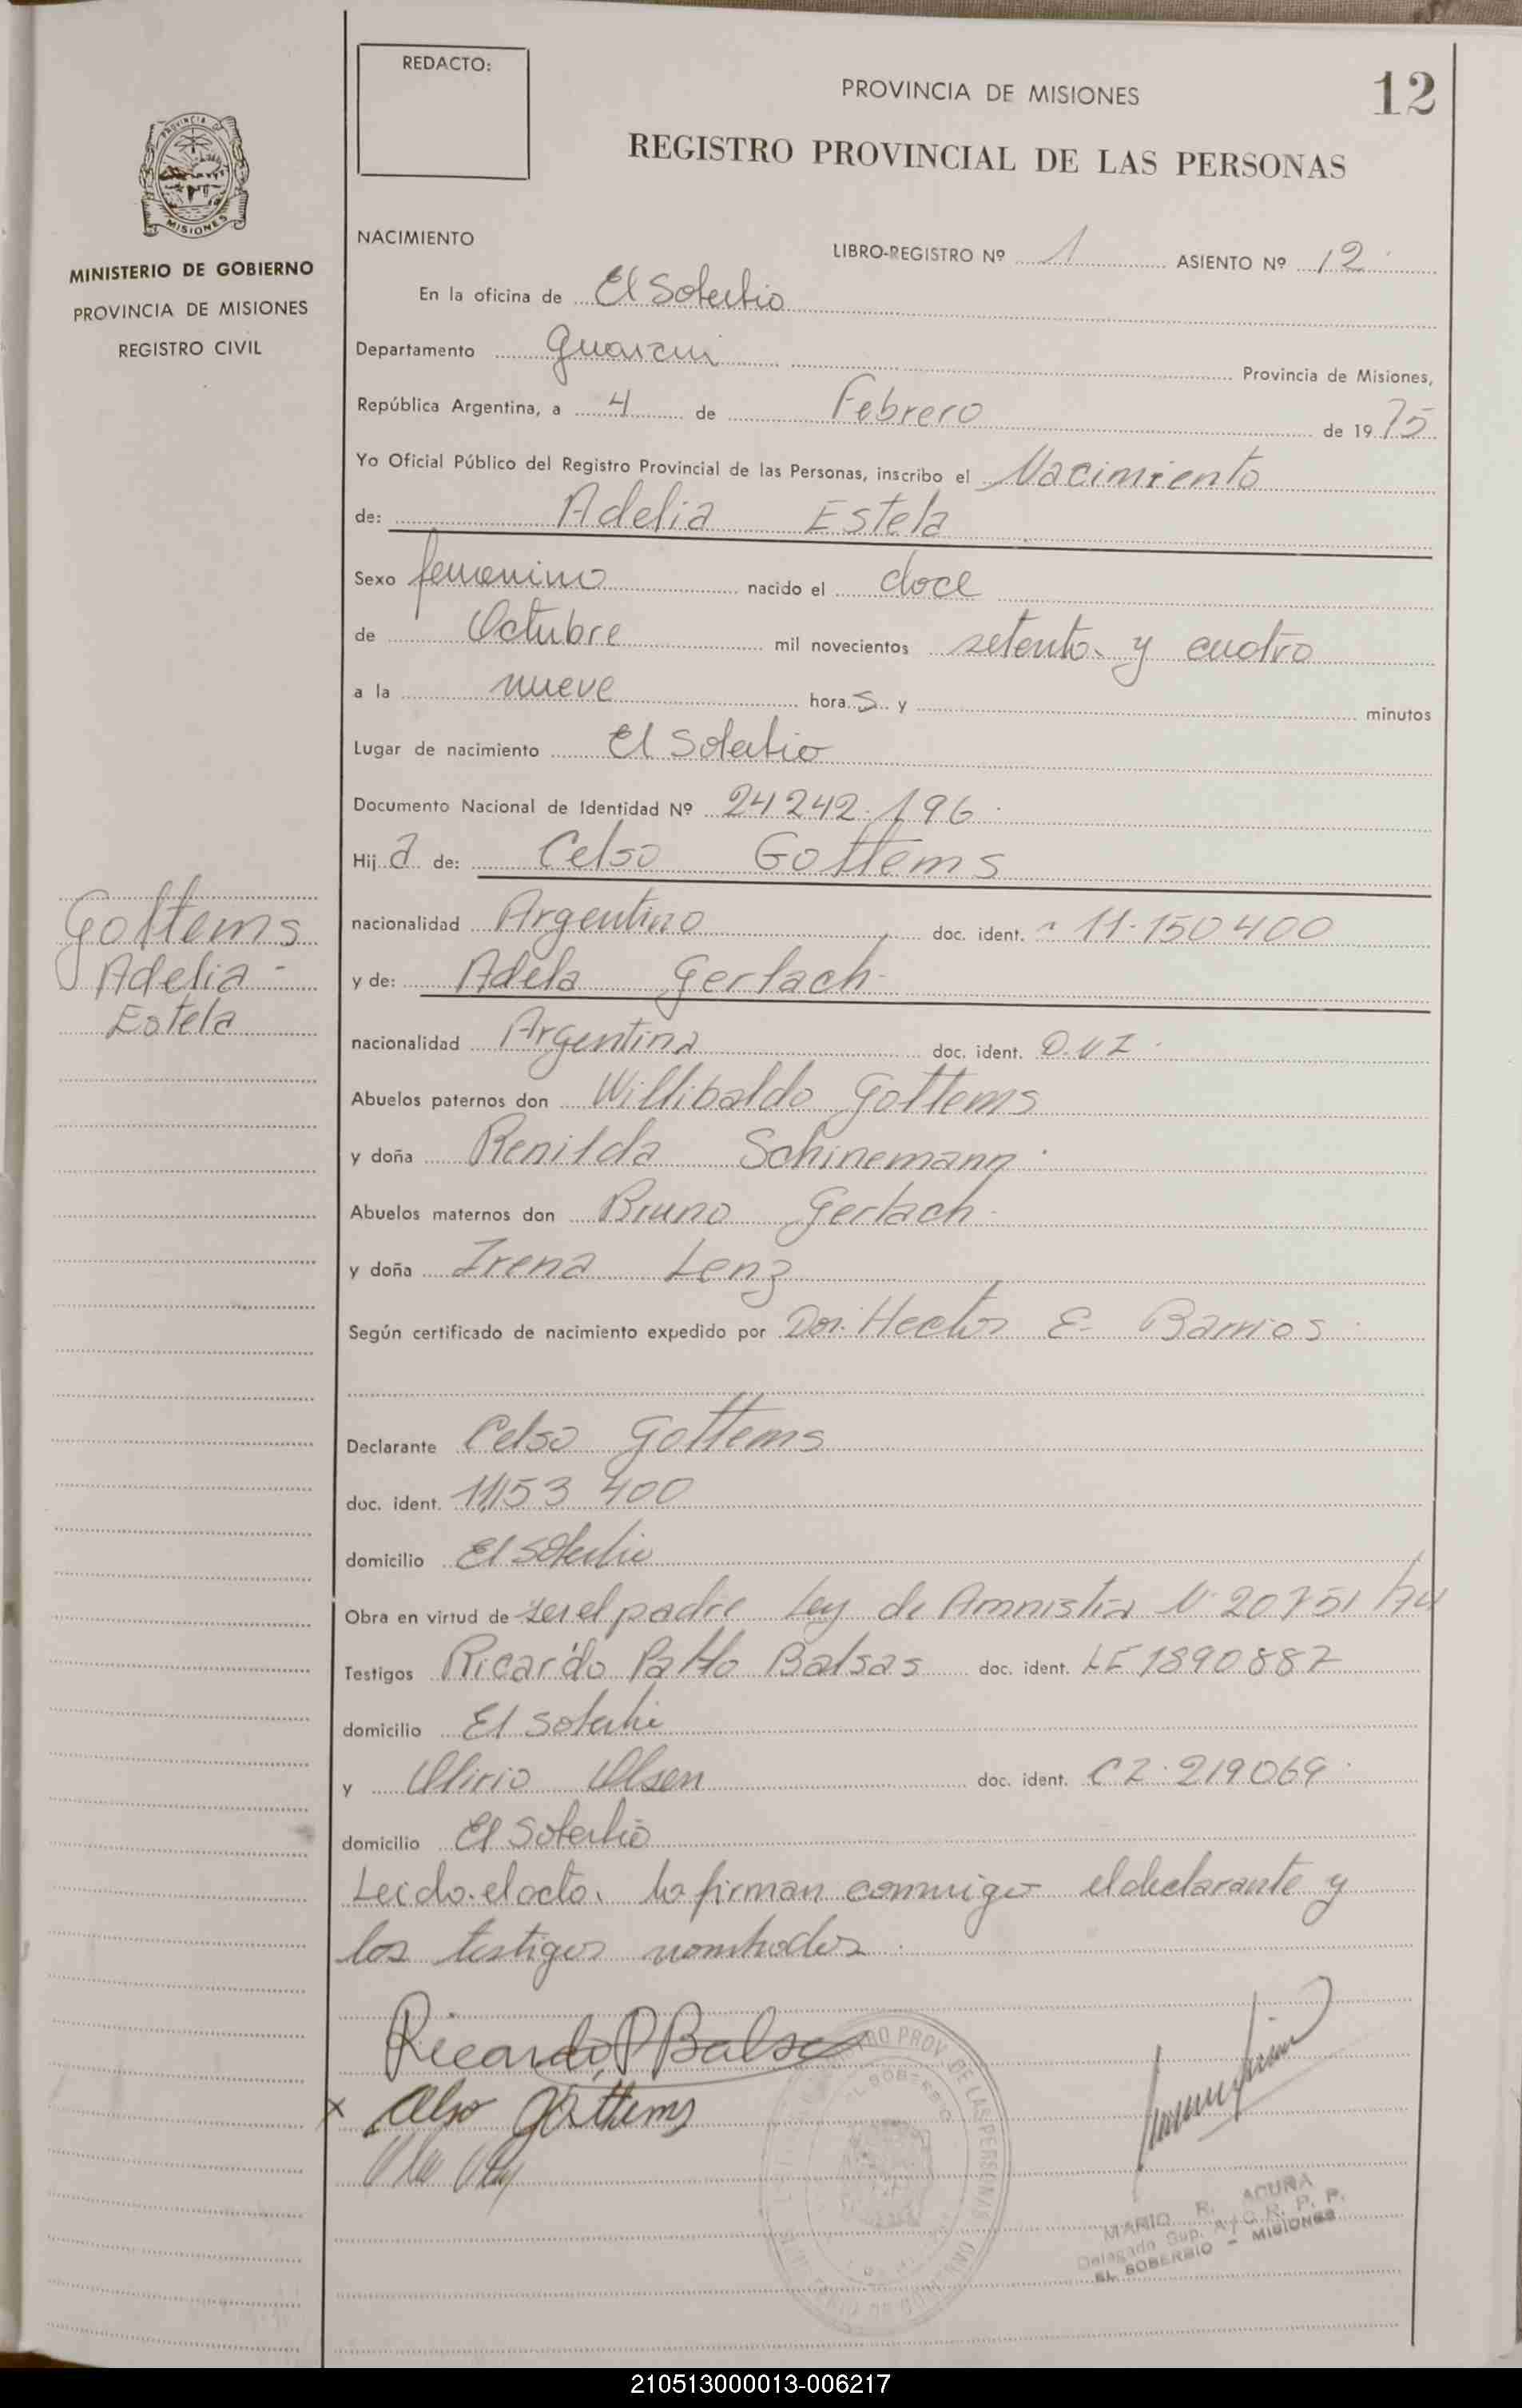 REDACTO:
PROVINCIA DE MISIONES
12
REGISTRO PROVINCIAL DE LAS PERSONAS
PROVINCIA DE
MISIONES
MINISTERIO DE GOBIERNO
PROVINCIA DE MISIONES
REGISTRO CIVIL
NACIMIENTO
LIBRO-REGISTRO Nº 1 ASIENTO Nº 12
En la oficina de El Soberbio
Departamento Guarani Provincia de Misiones,
República Argentina, a 4 de Febrero de 1975
Yo Oficial Público del Registro Provincial de las Personas, inscribo el Nacimiento
de: Adelia Estela
Sexo femenino nacido el doce
de Octubre mil novecientos setenta y cuatro
a la nueve horas y minutos
Lugar de nacimiento El Soberbio
Documento Nacional de Identidad Nº 24242.196
Hija de: Celso Gottems
Gottems
Adelia
Estela
nacionalidad Argentino doc. ident. 11.150400
y de: Adela Gerlach
nacionalidad Argentina doc. ident. D.N I
Abuelos paternos don Willibaldo Gottems
y doña Renilda Schinemann
Abuelos maternos don Bruno Gerlach
y doña Irena Lenz
Según certificado de nacimiento expedido por Don. Hector E. Barrios
Declarante Celso Gottems
doc. ident. 11153 400
domicilio El Soberbio
Obra en virtud de ser el padre Ley de Amnistia N 20751/74
Testigos Ricardo Balsas doc. ident. LE 1890887
domicilio El Soberbio
y Olirio Olsen doc. ident. C I. 219069
domicilio El Soberbio
Leido el acta, la firman conmigo el declarante y
los testigos nombrados
Ricardo P Balsa
x Celso Gottems
REGISTRO PROV. DE LAS PERSONAS
EL SOBERBIO
MARIO R. ACUÑA
Delegado Sup. A/C R. P. P.
EL SOBERBIO - MISIONES
210513000013-006217